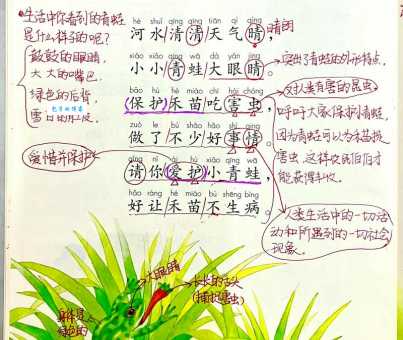 生活中你看到的青蛙
是什么样子的呢?
鼓鼓的眼睛,
大大的嘴巴
绿色的后背,
雪白的肚皮.
爱惜并保护
hé shuǐ qīng qīng tiān qì qíng
河水清清天气晴,
晴朗
xiǎo xiǎo qīng wā dà yǎn jīng
小小青蛙大眼睛。
突出了青蛙的外形特点.
bǎo hù hé miáo chī hài chóng
保护禾苗吃害虫,
对人类有害的昆虫
zuò le bù shǎo hǎo shì qíng
做了不少好事情。
呼吁大家保护青蛙,
因为青蛙可以为禾苗捉
害虫,这样农民伯伯才
能获得丰收.
qǐng nǐ ài hù xiǎo qīng wā
请你爱护小青蛙,
hǎo ràng hé miáo bù shēng bìng
好让禾苗不生病。
人类生活中的一切活
动和所遇到的一切社会
现象.
大眼睛
长长的舌头
(捕捉害虫)
身体是
绿色的